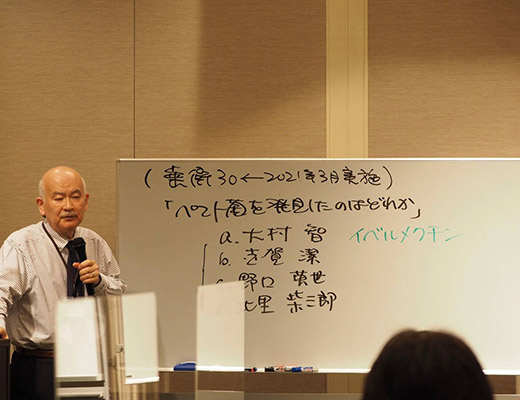 (薬衛30←2021年3月実施)
「ペスト菌を発見したのはどれか」
a. 大村 智 イベルメクチン
b. 志賀 潔
野口 英世
里 柴三郎